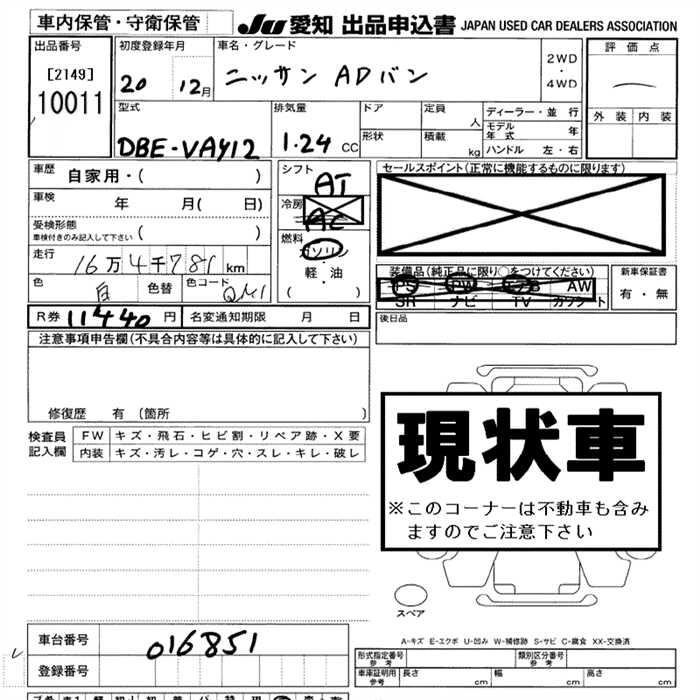 車内保管・守衛保管
JU 愛知 出品申込書 JAPAN USED CAR DEALERS ASSOCIATION
出品番号
[2149]
10011
初度登録年月
20 12月
車名・グレード
ニッサン ADバン
2WD
・
4WD
評価点
外装 内装
型式
DBE-VAY12
排気量
1.24 CC
ドア
形状
定員 人
積載 kg
ディーラー・並行
モデル年式 年
ハンドル 左・右
車歴 自家用・( )
車検 年 月( 日)
受検形態
車検付きのみ記入して下さい ( )
走行 16万4千781km
色 白 色替 色コード QM1
シフト
AT
冷房
AC
燃料
ガソリン
・
軽・油
( )
セールスポイント(正常に機能するものに限ります)
装備品(純正品に限り○をつけてください)
PS PW エアB AW
SR ナビ TV カセット
新車保証書
有・無
R券 11440円 名変通知期限 月 日
後日品
注意事項申告欄(不具合内容等は具体的に記入して下さい)
修復歴 有 (箇所 )
検査員
記入欄
FW キズ・飛石・ヒビ割・リペア跡・X要
内装 キズ・汚レ・コゲ・穴・スレ・キレ・破レ
現状車
※このコーナーは不動車も含み
ますのでご注意下さい
スペア
A-キズ E-エクボ U-凹み W-補修跡 S-サビ C-腐食 XX-交換済
車台番号 016851
登録番号
形式指定番号
参考
類別区分番号
参考
車庫証明用
参考
長さ cm 幅 cm 高さ cm